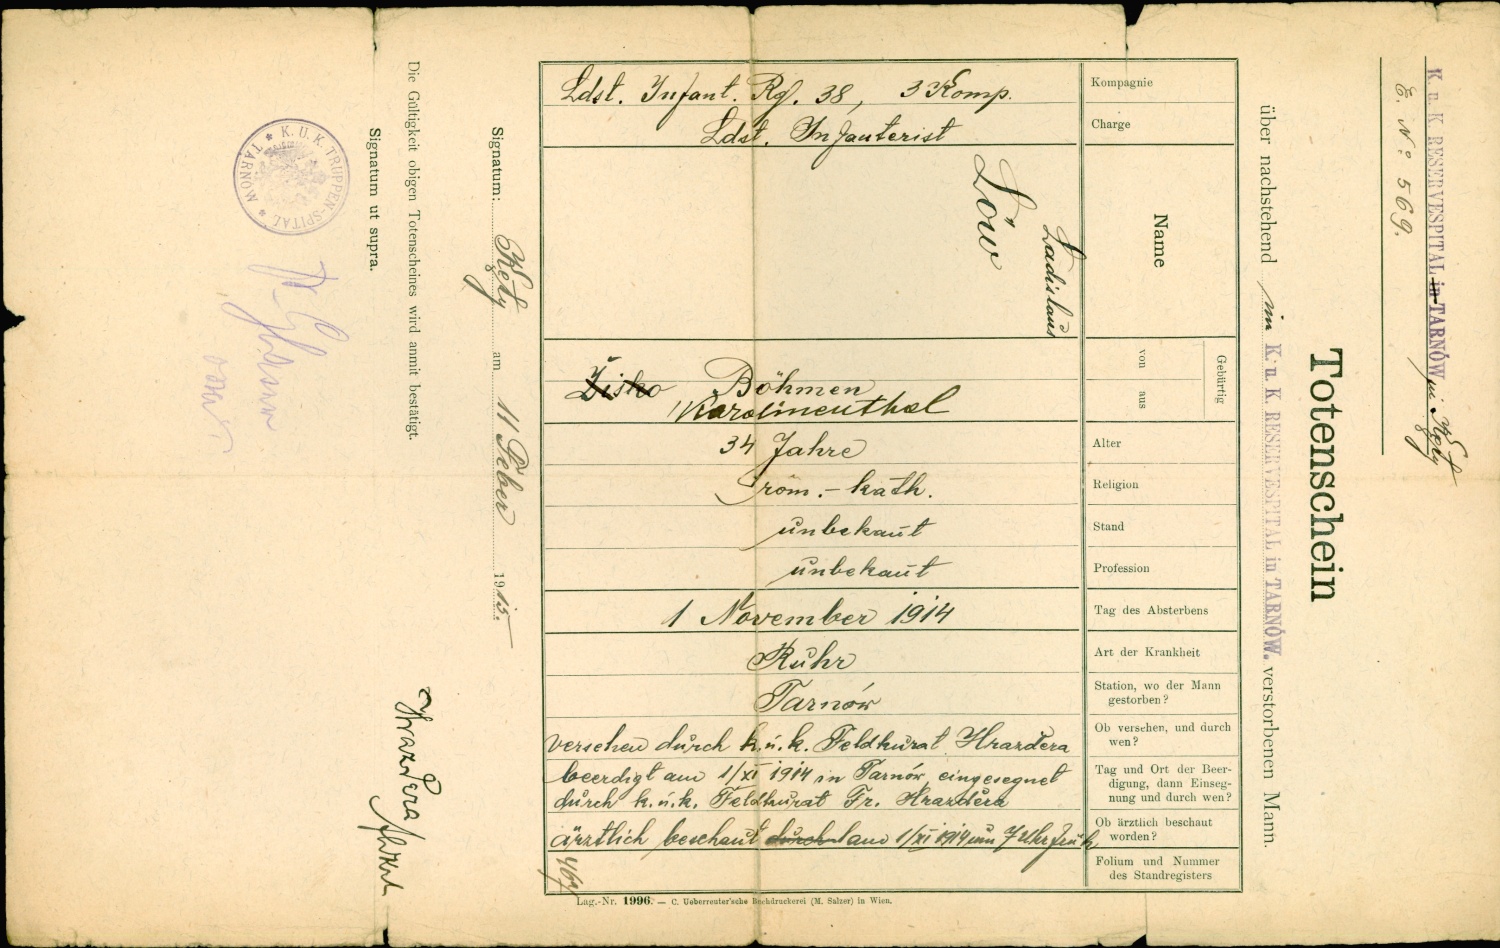 K. u. K. RESERVESPITAL in TARNÓW in Kęty
E. No: 569.
Totenschein
über nachstehend im K. u. K. RESERVESPITAL in TARNÓW. verstorbenen Mann.
Kompagnie
Ldst. Infant. Rg. 38, 3 Komp.
Charge
Ldst. Infanterist
Name
Ladislaus
Löw
Gebürtig
von
Žisko Böhmen
aus
Karolinenthal
Alter
34 Jahre
Religion
röm.-kath.
Stand
unbekant
Profession
unbekant
Tag des Absterbens
1 November 1914
Art der Krankheit
Ruhr
Station, wo der Mann
gestorben?
Tarnów
Ob versehen, und durch
wen?
versehen durch k.u.k. Feldkurat Hrazdera
Tag und Ort der Beer-
digung, dann Einseg-
nung und durch wen?
beerdigt am 1/XI 1914 in Tarnów, eingesegnet
durch k.u.k. Feldkurat Fr. Hrazdera
Ob ärztlich beschaut
worden?
ärztlich beschaut durch am 1/XI 1914 um 7 Uhr früh
Folium und Nummer
des Standregisters
Lag.-Nr. 1996. — C. Ueberreuter'sche Buchdruckerei (M. Salzer) in Wien.
Signatum: Kęty am 11 Feber 1915.
Hrazdera
Die Gültigkeit obigen Totenscheines wird anmit bestätigt.
Signatum ut supra.
K. U. K. TRUPPEN-SPITAL * TARNÓW *